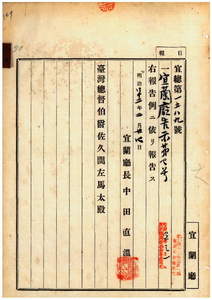 報 日
宜總第一三八九號
一宜蘭廳告示第七號
右報告例ニ依リ報告ス
明治四十三年四月廿七日
宜蘭廳長中田直溫
臺灣總督伯爵佐久間左馬太殿
宜蘭廳